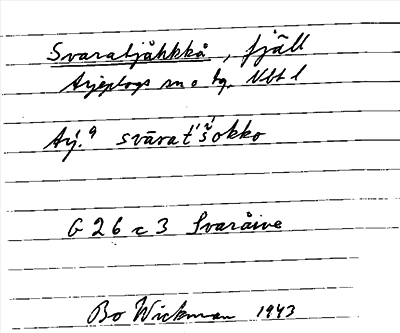 Svaratjåhkkå, fjäll
Arjeplogs sn o tg. Vbt l
Arj.ᵃ svāratʹšʹokko
G 26 c 3 Svaråive
Bo Wickman 1943